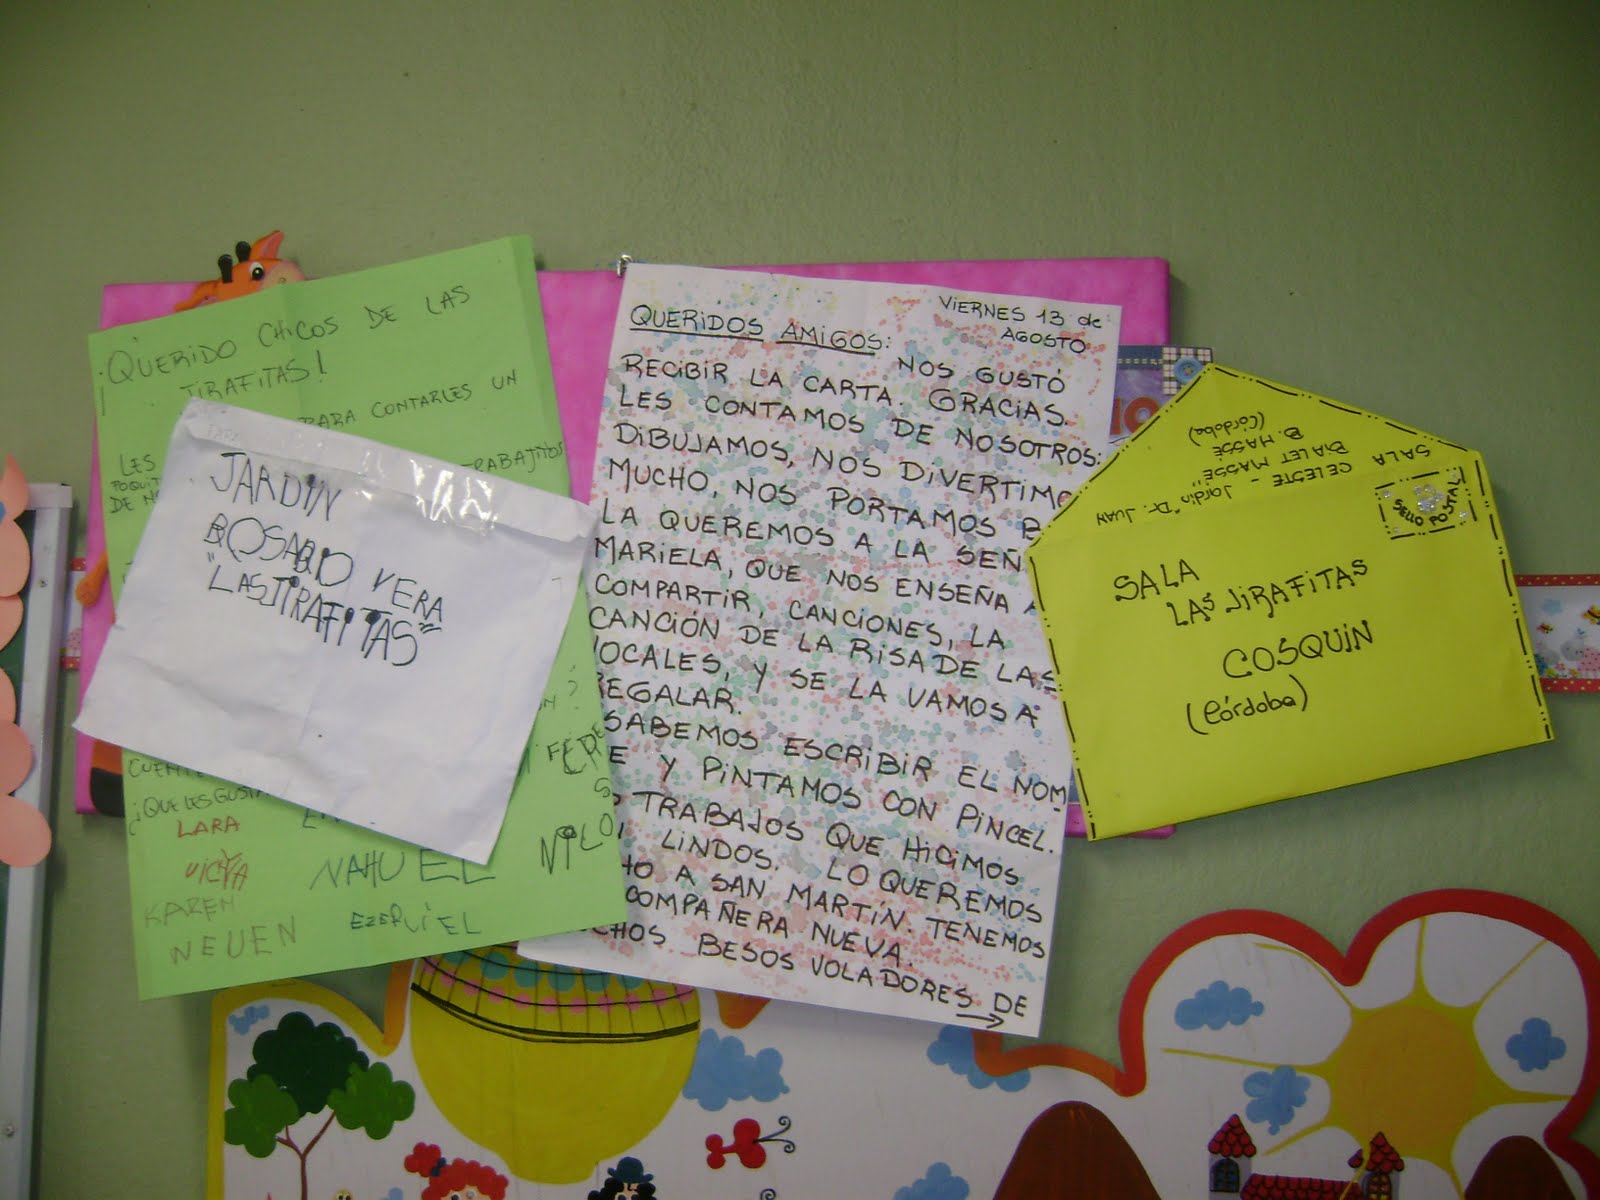 ¡QUERIDO CHICOS DE LAS
JIRAFITAS!
PARA CONTARLES UN
LES TRABAJITOS
POQUIT
DE N
CUENTE
¿QUE LES GUSTA
LARA
VICKYA
NAHUEL
KAREN
NEUEN
EZEQUIEL
JARDIN
ROSARIO VERA
"LAS JIRAFITAS"
VIERNES 13 de
AGOSTO
QUERIDOS AMIGOS: NOS GUSTÓ
RECIBIR LA CARTA. GRACIAS.
LES CONTAMOS DE NOSOTROS:
DIBUJAMOS, NOS DIVERTIMO
MUCHO, NOS PORTAMOS B
LA QUEREMOS A LA SEÑ
MARIELA, QUE NOS ENSEÑA A
COMPARTIR, CANCIONES, LA
CANCIÓN DE LA RISA DE LAS
VOCALES, Y SE LA VAMOS A
REGALAR.
SABEMOS ESCRIBIR EL NOM
E Y PINTAMOS CON PINCEL.
S TRABAJOS QUE HICIMOS
LINDOS. LO QUEREMOS
HO A SAN MARTÍN. TENEMOS
COMPAÑERA NUEVA.
CHOS BESOS VOLADORES DE
SALA
CELESTE - Jardín "Dr. JUAN
BIALET MASSÉ"
B. MASSÉ
(Córdoba)
SELLO POSTAL
SALA
LAS JIRAFITAS
COSQUIN
(Córdoba)